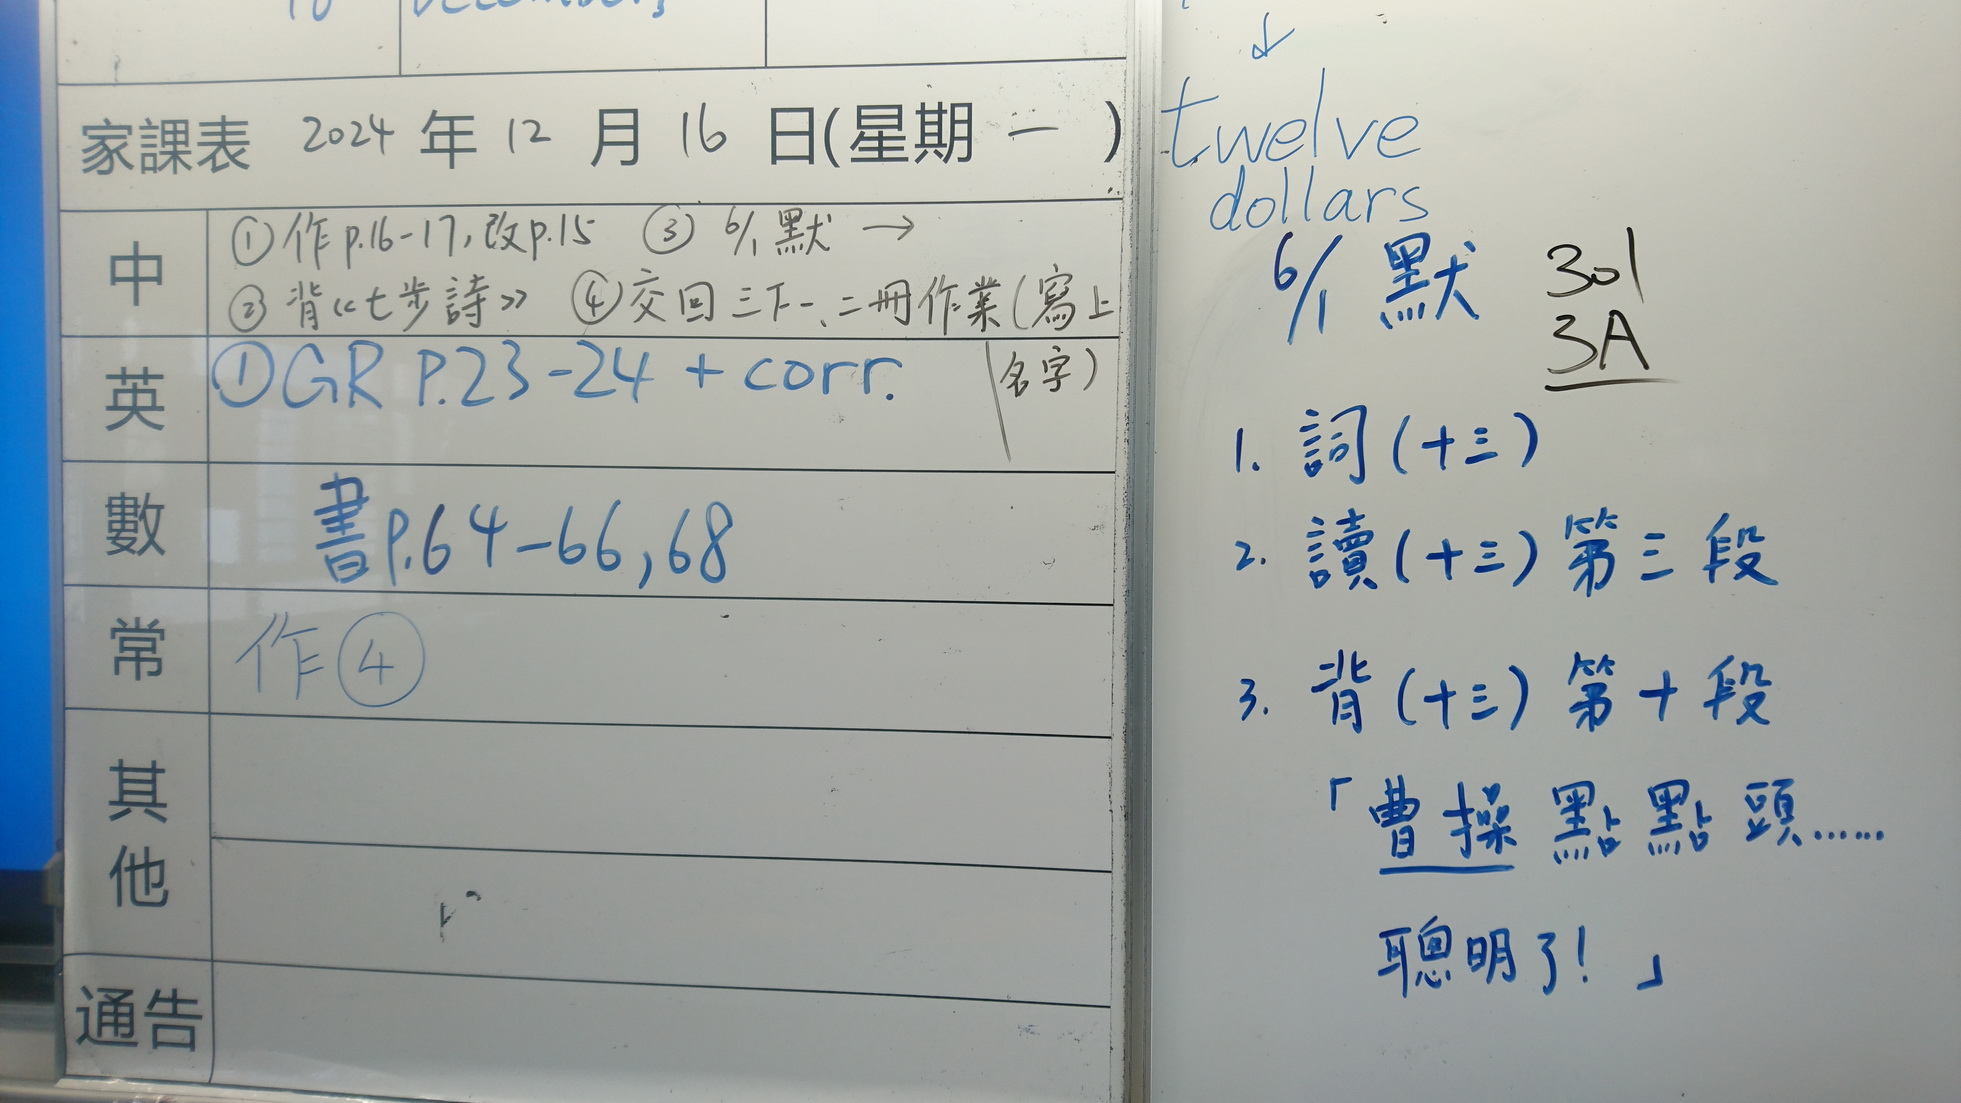 家課表 2024 年 12 月 16 日(星期 一 )
中
①作p.16-17,改p.15 ③ 6/1 默 →
②背《七步詩》 ④交回三下一、二冊作業(寫上
名字)
英
①GR P.23-24 + corr.
數
書P.64-66,68
常
作④
其他
通告
twelve
dollars
6/1 默
301
3A
1. 詞(十三)
2. 讀(十三)第三段
3. 背(十三)第十段
「曹操點點頭……
聰明了!」